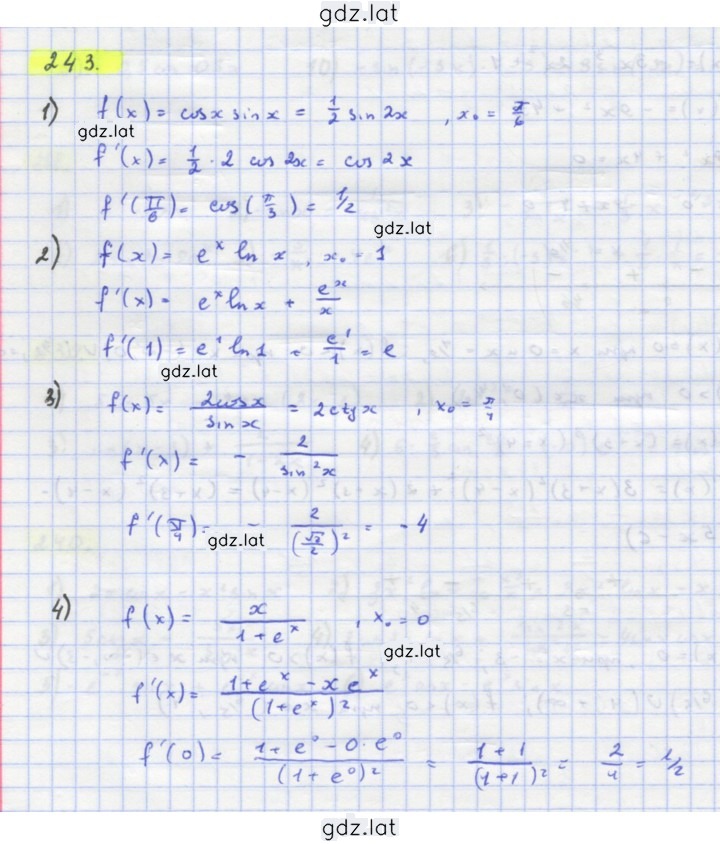 gdz.lat
243.
1) f(x) = cosx sinx = 1/2 sin 2x , x₀ = π/6
gdz.lat
f'(x) = 1/2 · 2 cos 2x = cos 2x
f'(π/6) = cos(π/3) = 1/2
gdz.lat
2) f(x) = eˣ ln x , x₀ = 1
f'(x) = eˣ ln x + eˣ/x
f'(1) = e¹ ln 1 + e¹/1 = e
gdz.lat
3) f(x) = 2cosx/sin x = 2ctgx , x₀ = π/4
f'(x) = - 2/sin²x
f'(π/4) = - 2/(√2/2)² = -4
gdz.lat
4) f(x) = x/(1+eˣ) , x₀ = 0
gdz.lat
f'(x) = (1+eˣ - xeˣ)/(1+eˣ)²
f'(0) = (1+e⁰-0·e⁰)/(1+e⁰)² = (1+1)/(1+1)² = 2/4 = 1/2
gdz.lat